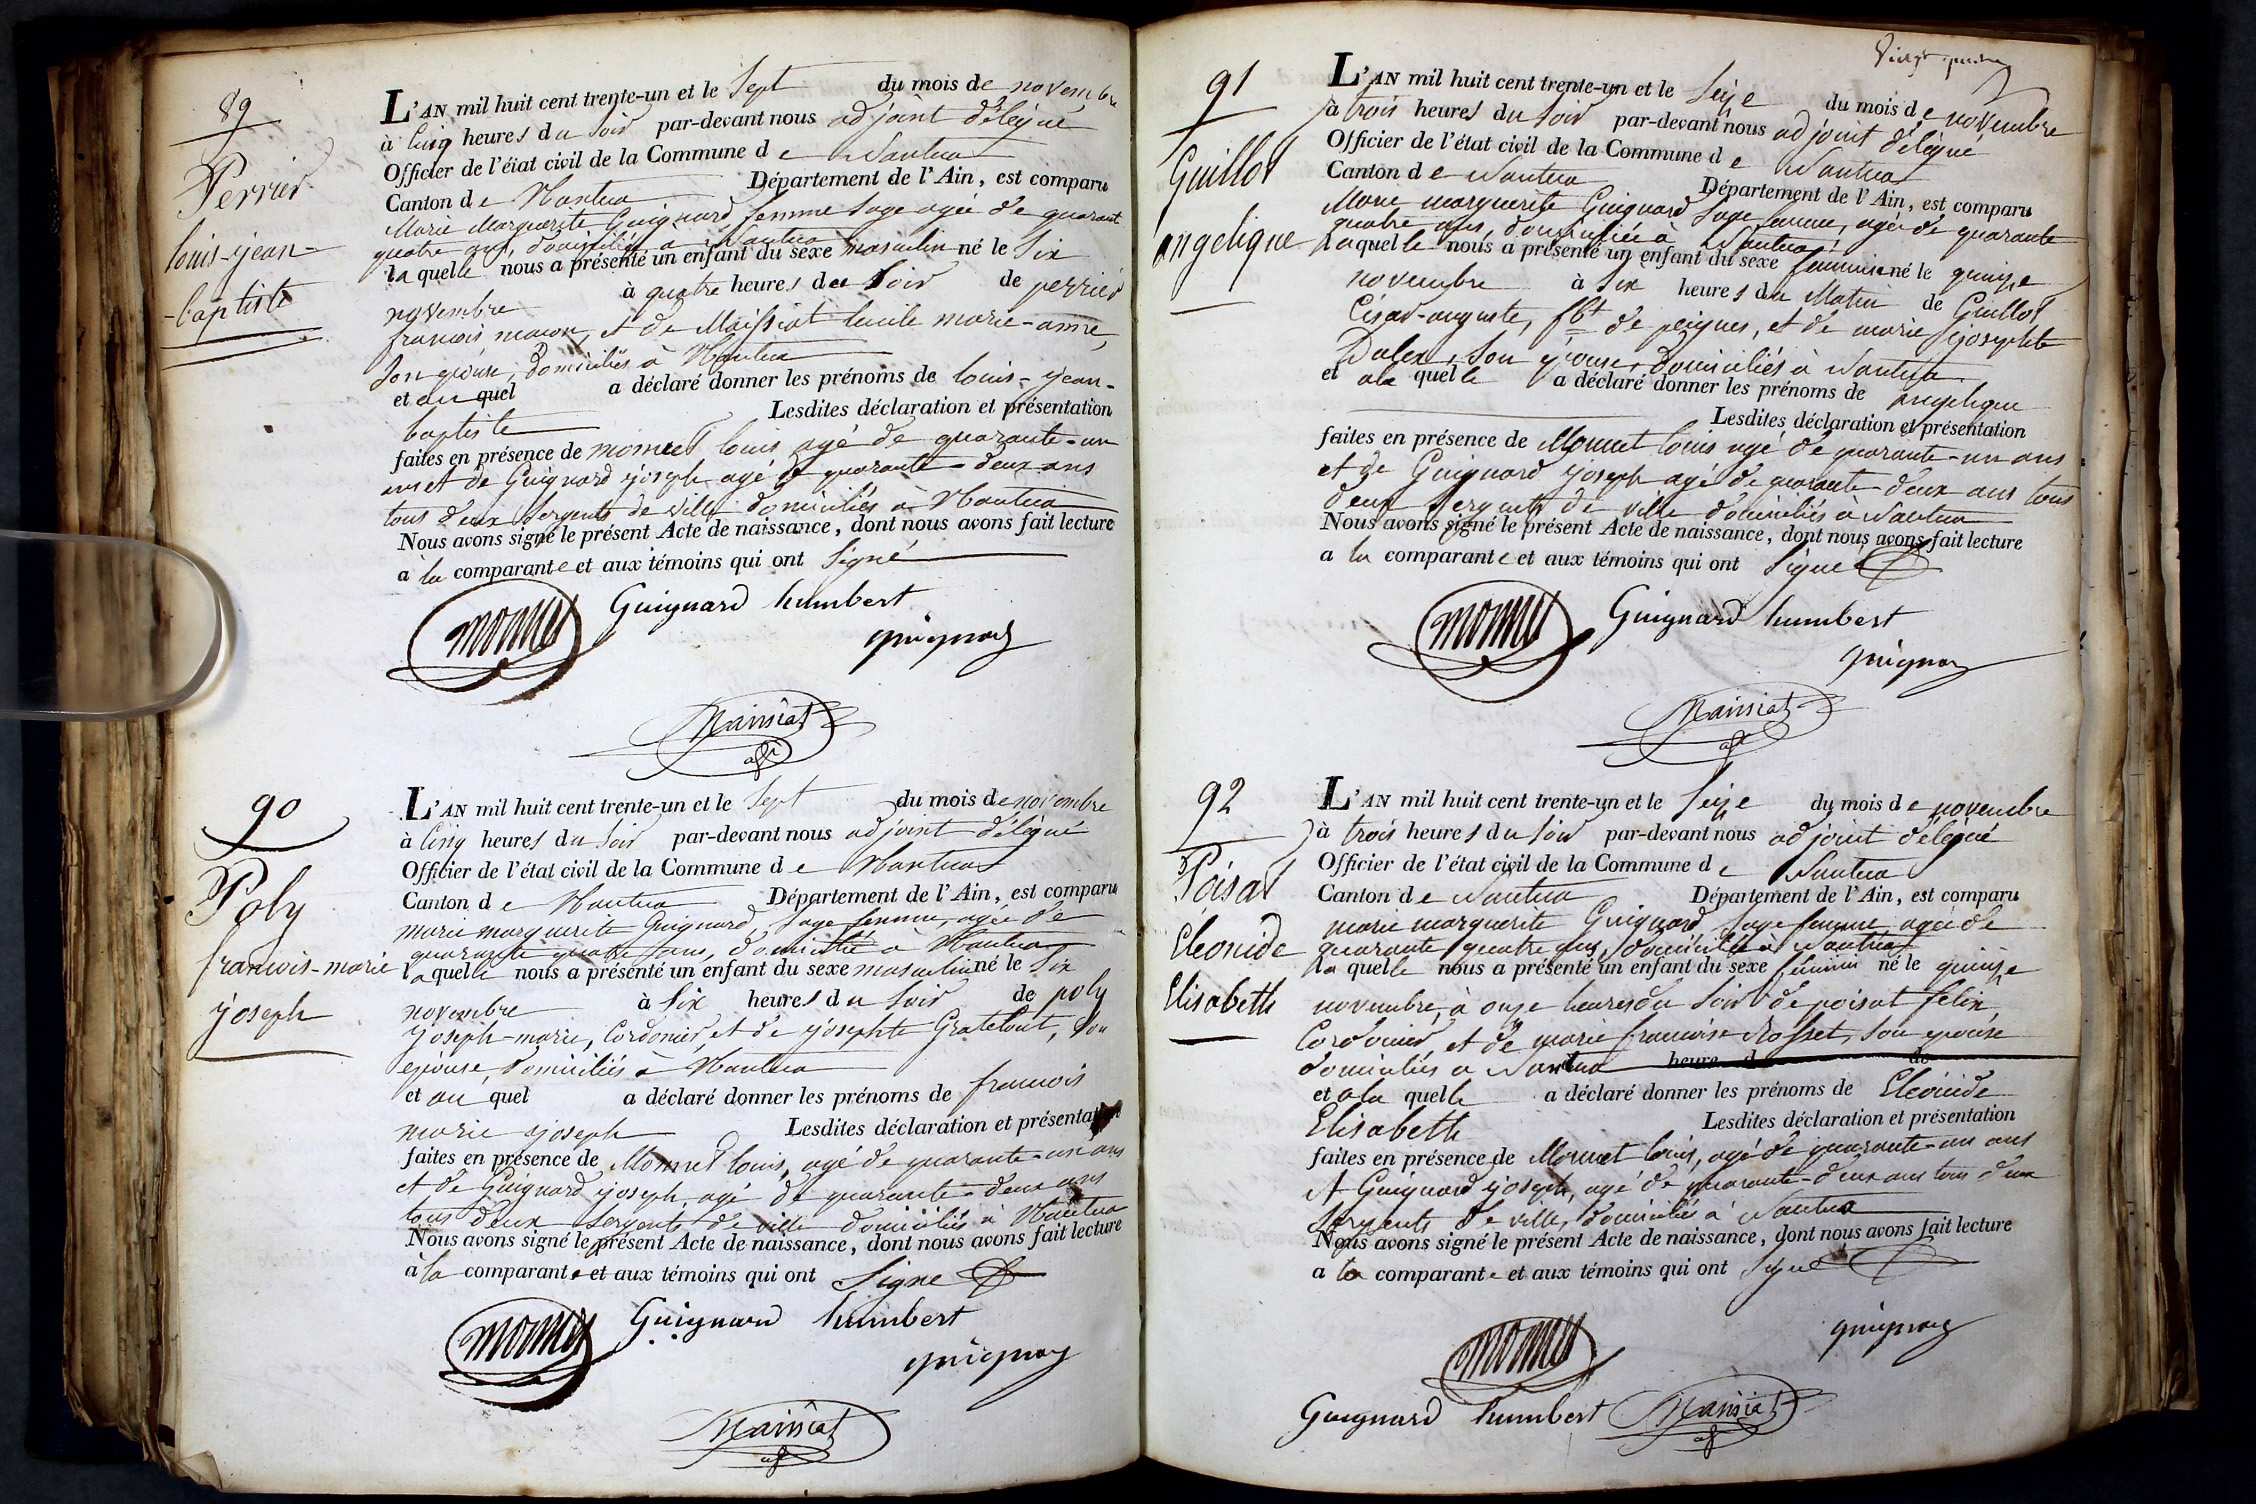 89
Perrier
louis-jean-
-baptiste
L'AN mil huit cent trente-un et le Sept du mois de novembre
à Cinq heures du Soir par-devant nous adjoint délégué
Officier de l'état civil de la Commune de Nantua
Canton de Nantua Département de l'Ain, est comparu
Marie Marguerite Guignard femme Sage agée de quarant
quatre ans, domiciliée a Nantua
laquelle nous a présenté un enfant du sexe masculin né le Six
novembre à quatre heures du Soir de perrier
francois macon, et de Maissiat lucile marie-anne,
Son epouse, domiciliés à Nantua
et au quel a déclaré donner les prénoms de louis-jean-
baptiste Lesdites déclaration et présentation
faites en présence de monnet louis agé de quarante-un
ans et de Guignard joseph agé de quarante-deux ans
tous deux Sergents de ville domiciliés à Nantua
Nous avons signé le présent Acte de naissance, dont nous avons fait lecture
a la comparante et aux témoins qui ont Signé
monnet Guignard humbert
guignard
Maissiat
adj
90
Poly
francois-marie
joseph
L'AN mil huit cent trente-un et le Sept du mois de novembre
à Cinq heures du Soir par-devant nous adjoint délégué
Officier de l'état civil de la Commune de Nantua
Canton de Nantua Département de l'Ain, est comparu
marie marguerite Guignard, Sage femme, agée de
quarante quatre ans, domiciliée à Nantua
laquelle nous a présenté un enfant du sexe masculin né le Six
novembre à Six heures du Soir de poly
joseph-marie, Cordonier, et de josephte Gratelout, Son
epouse, domiciliés à Nantua
et au quel a déclaré donner les prénoms de francois
marie joseph Lesdites déclaration et présentation
faites en présence de Monnet louis, agé de quarante-un ans
et de Guignard joseph agé de quarante-deux ans
tous deux Sergents de ville domiciliés à Nantua
Nous avons signé le présent Acte de naissance, dont nous avons fait lecture
à la comparante et aux témoins qui ont Signé
monnet Guignard humbert
guignard
Maissiat
adj
91
Guillot
angelique
L'AN mil huit cent trente-un et le Seize du mois de novembre
à trois heures du Soir par-devant nous adjoint délégué
Officier de l'état civil de la Commune de Nantua
Canton de Nantua Département de l'Ain, est comparu
Marie marguerite Guignard Sage femme, agée de quarante
quatre ans, domiciliée à Nantua
laquelle nous a présenté un enfant du sexe feminin né le quinze
novembre à Six heures du Matin de Guillot
César-auguste, fbt de peignes, et de marie josephte
Dalex, Son epouse, domiciliés à Nantua
et a la quelle a déclaré donner les prénoms de angelique
Lesdites déclaration et présentation
faites en présence de Monnet louis agé de quarante-un ans
et de Guignard joseph agé de quarante-deux ans tous
deux Sergents de ville domiciliés à Nantua
Nous avons signé le présent Acte de naissance, dont nous avons fait lecture
a la comparante et aux témoins qui ont Signé
monnet Guignard humbert
guignard
Maissiat
adj
92
Poisat
Eleonide
Elisabeth
L'AN mil huit cent trente-un et le Seize du mois de novembre
à trois heures du Soir par-devant nous adjoint délégué
Officier de l'état civil de la Commune de Nantua
Canton de Nantua Département de l'Ain, est comparu
marie marguerite Guignard, Sage femme agée de
quarante quatre ans, domiciliée à Nantua
laquelle nous a présenté un enfant du sexe féminin né le quinze
novembre, à onze heures du Soir de poisat felix,
Cordonier, et de marie francoise Rosset, Son epouse
domiciliés a Nantua heure d de
et a la quelle a déclaré donner les prénoms de Eleonide
Elisabeth Lesdites déclaration et présentation
faites en présence de Monnet louis, agé de quarante-un ans
et Guignard joseph, agé de quarante-deux ans tous deux
Sergents de ville, domiciliés à Nantua
Nous avons signé le présent Acte de naissance, dont nous avons fait lecture
a la comparante et aux témoins qui ont Signé
monnet guignard
Guignard humbert Maissiat
adj